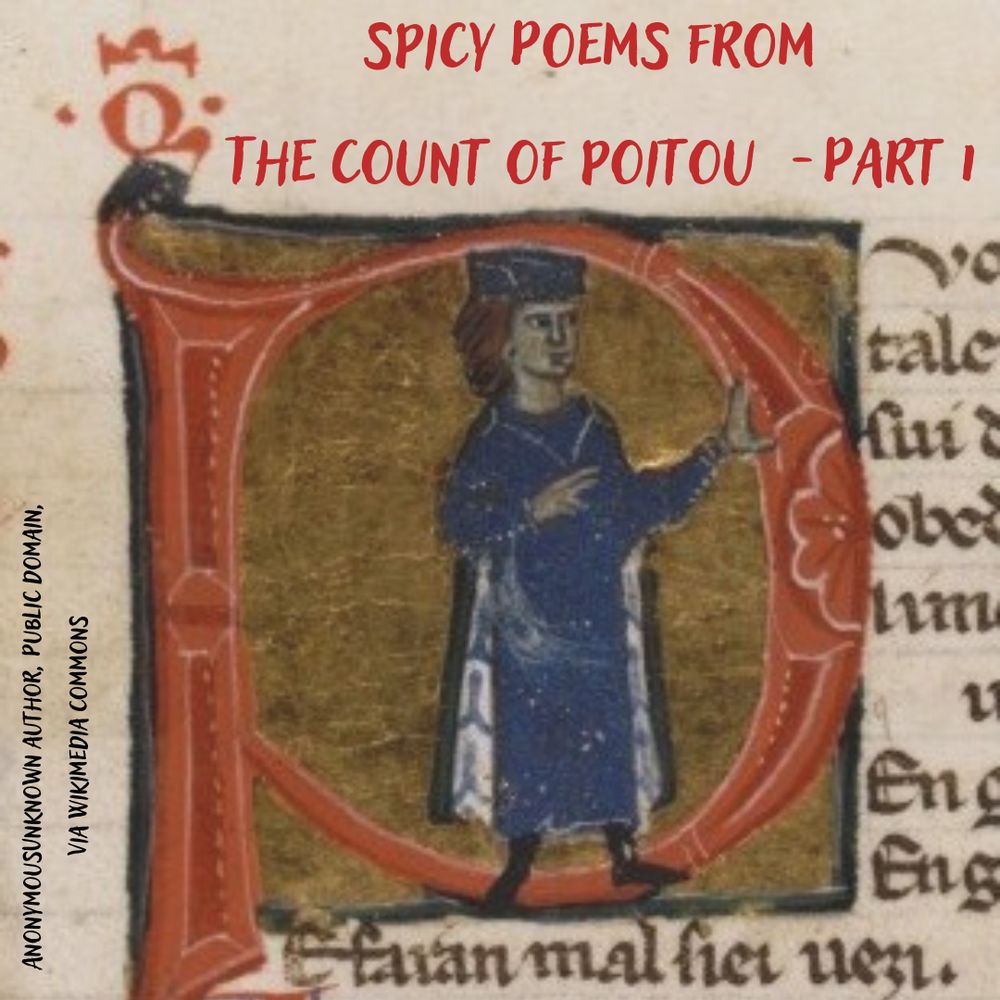 SPICY POEMS FROM
THE COUNT OF POITOU - PART 1
ANONYMOUSUNKNOWN AUTHOR, PUBLIC DOMAIN,
VIA WIKIMEDIA COMMONS
P
tale
En g
En g
E faran mal siei uezi.